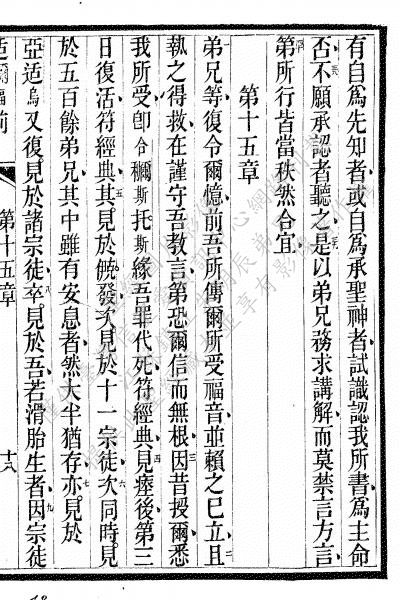 有自爲先知者或自爲承聖神者試識認我所書爲主命
否不願承認者聽之是以弟兄務求講解而莫禁言方言
第所行皆當秩然合宜
第十五章
弟兄等復令爾憶前吾所傳爾所受福音並賴之已立且
執之得救在謹守吾教言第恐爾信而無根因昔授爾悉
我所受卽合穪斯托斯緣吾罪代死符經典見瘞後第三
日復活符經典其見於
發次見於十一宗徒次同時見
於五百餘弟兄其中雖有安息者然大半猶存亦見於
亞适烏又復見於諸宗徒卒見於吾若滑胎生者因宗徒
前
第十五章
十八